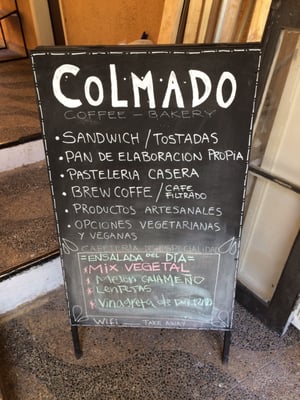 COLMADO
COFFEE - BAKERY
• SANDWICH / TOSTADAS
• PAN DE ELABORACION PROPIA
• PASTELERIA CASERA
• BREW COFFE / CAFE FILTRADO
• PRODUCTOS ARTESANALES
• OPCIONES VEGETARIANAS
Y VEGANAS
CAFETERIA DE ESPECIALIDAD
=ENSALADA DEL DÍA=
* MIX VEGETAL
* MELON CALAMEÑO
* LENTEJAS
* Vinagreta de
WIFI _ TAKE AWAY